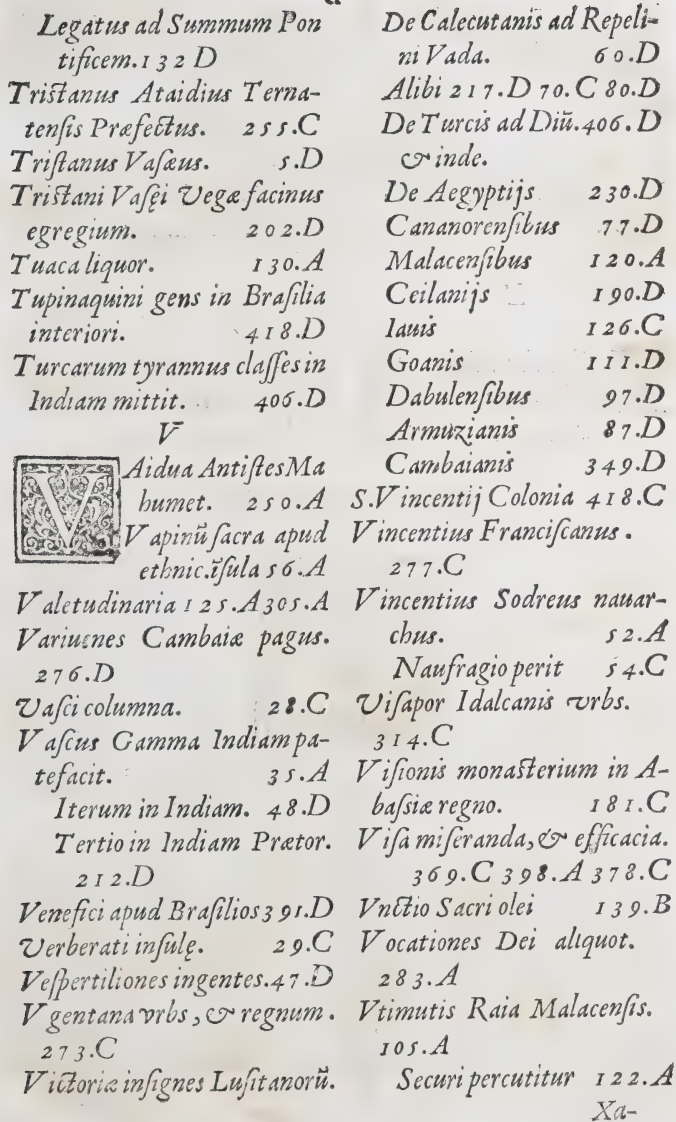 Legatus ad Summum Pon
tificem. 132 D
Tristanus Ataidius Terna-
tensis Præfectus. 255.C
Tristanus Vasæus. 5.D
Tristani Vasęi Vegæ facinus
egregium. 202.D
Tuaca liquor. 130.A
Tupinaquini gens in Brasilia
interiori. 418.D
Turcarum tyrannus classes in
Indiam mittit. 406.D
V
VAidua Antistes Ma
humet. 250.A
Vapinũ sacra apud
ethnic. ĩsula 56.A
Valetudinaria 125.A 305.A
Variuenes Cambaiæ pagus.
276.D
Vasci columna. 28.C
Vascus Gamma Indiam pa-
tefacit. 35.A
Iterum in Indiam. 48.D
Tertio in Indiam Prætor.
212.D
Venefici apud Brasilios 391.D
Verberati insulę. 29.C
Vespertiliones ingentes. 47.D
Vgentana vrbs, & regnum.
273.C
Victoriæ insignes Lusitanorũ.
De Calecutanis ad Repeli-
ni Vada. 60.D
Alibi 217.D 70.C 80.D
De Turcis ad Diũ. 406.D
& inde.
De Aegyptijs 230.D
Cananorensibus 77.D
Malacensibus 120.A
Ceilanijs 190.D
Iauis 126.C
Goanis 111.D
Dabulensibus 97.D
Armuzianis 87.D
Cambaianis 349.D
S. Vincentij Colonia 418.C
Vincentius Franciscanus.
277.C
Vincentius Sodreus nauar-
chus. 52.A
Naufragio perit 54.C
Visapor Idalcanis vrbs.
314.C
Visionis monasterium in A-
bassiæ regno. 181.C
Visa miseranda, & efficacia.
369.C 398.A 378.C
Vnctio Sacri olei 139.B
Vocationes Dei aliquot.
283.A
Vtimutis Raia Malacensis.
105.A
Securi percutitur 122.A
Xa-